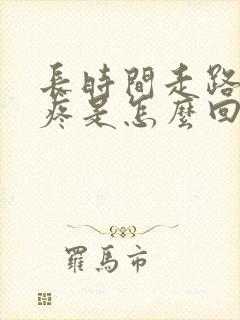 長時間走路
疼是怎麼回
羅馬市